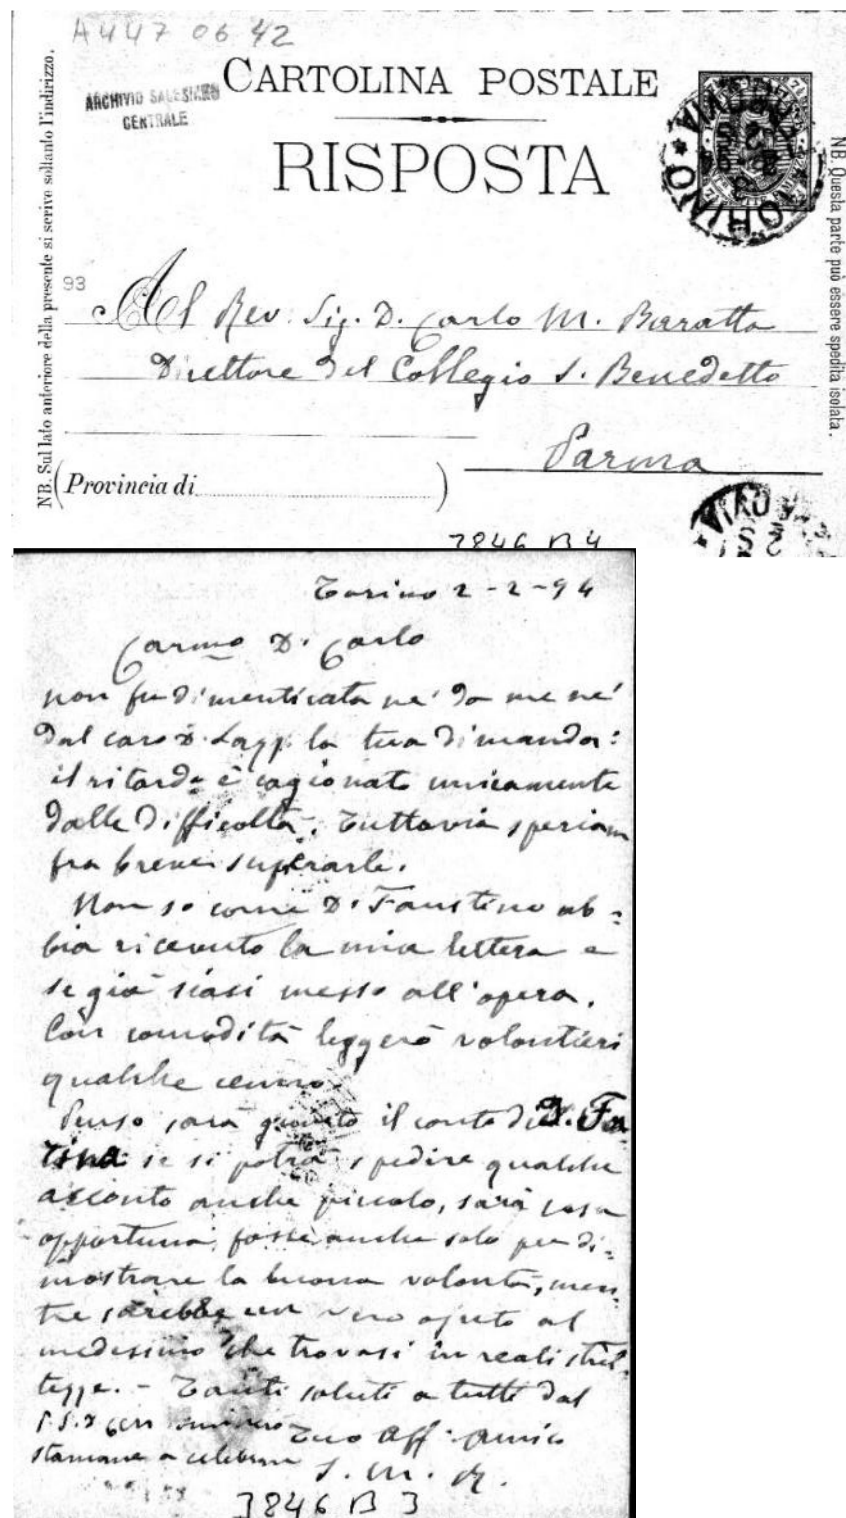 A4470642
ARCHIVIO SALESIANO
CENTRALE
CARTOLINA POSTALE
RISPOSTA
TORINO
FERROVIA
NB. Sul lato anteriore della presente si scrive soltanto l'indirizzo.
NB. Questa parte può essere spedita isolata.
93
Al Rev. Sig. D. Carlo M. Baratta
Direttore del Collegio S. Benedetto
Parma
(Provincia di )
3846 B 4
Torino 2-2-94
Carmo D. Carlo
non fu dimenticata nè da me nè
dal caro D. Lazz. la tua dimanda:
il ritardo è cagionato unicamente
dalle difficoltà. Tuttavia speriam
fra breve superarle.
Non so come D. Faustino ab=
bia ricevuto la mia lettera e
se già siasi messo all'opera.
Con comodità leggerò volontieri
qualche cenno.
Penso sarà giunto il conto di D. Fa
se si potrà spedire qualche
acconto anche piccolo, sarà cosa
opportuna, fosse anche solo per di=
mostrare la buona volontà, men
tre sarebbe un vero ajuto al
medesimo che trovasi in reali stret
tezze. - Tanti saluti a tutti dal
Tuo aff. amico
stamane a celebrare
S. M. R.
3846 B 3